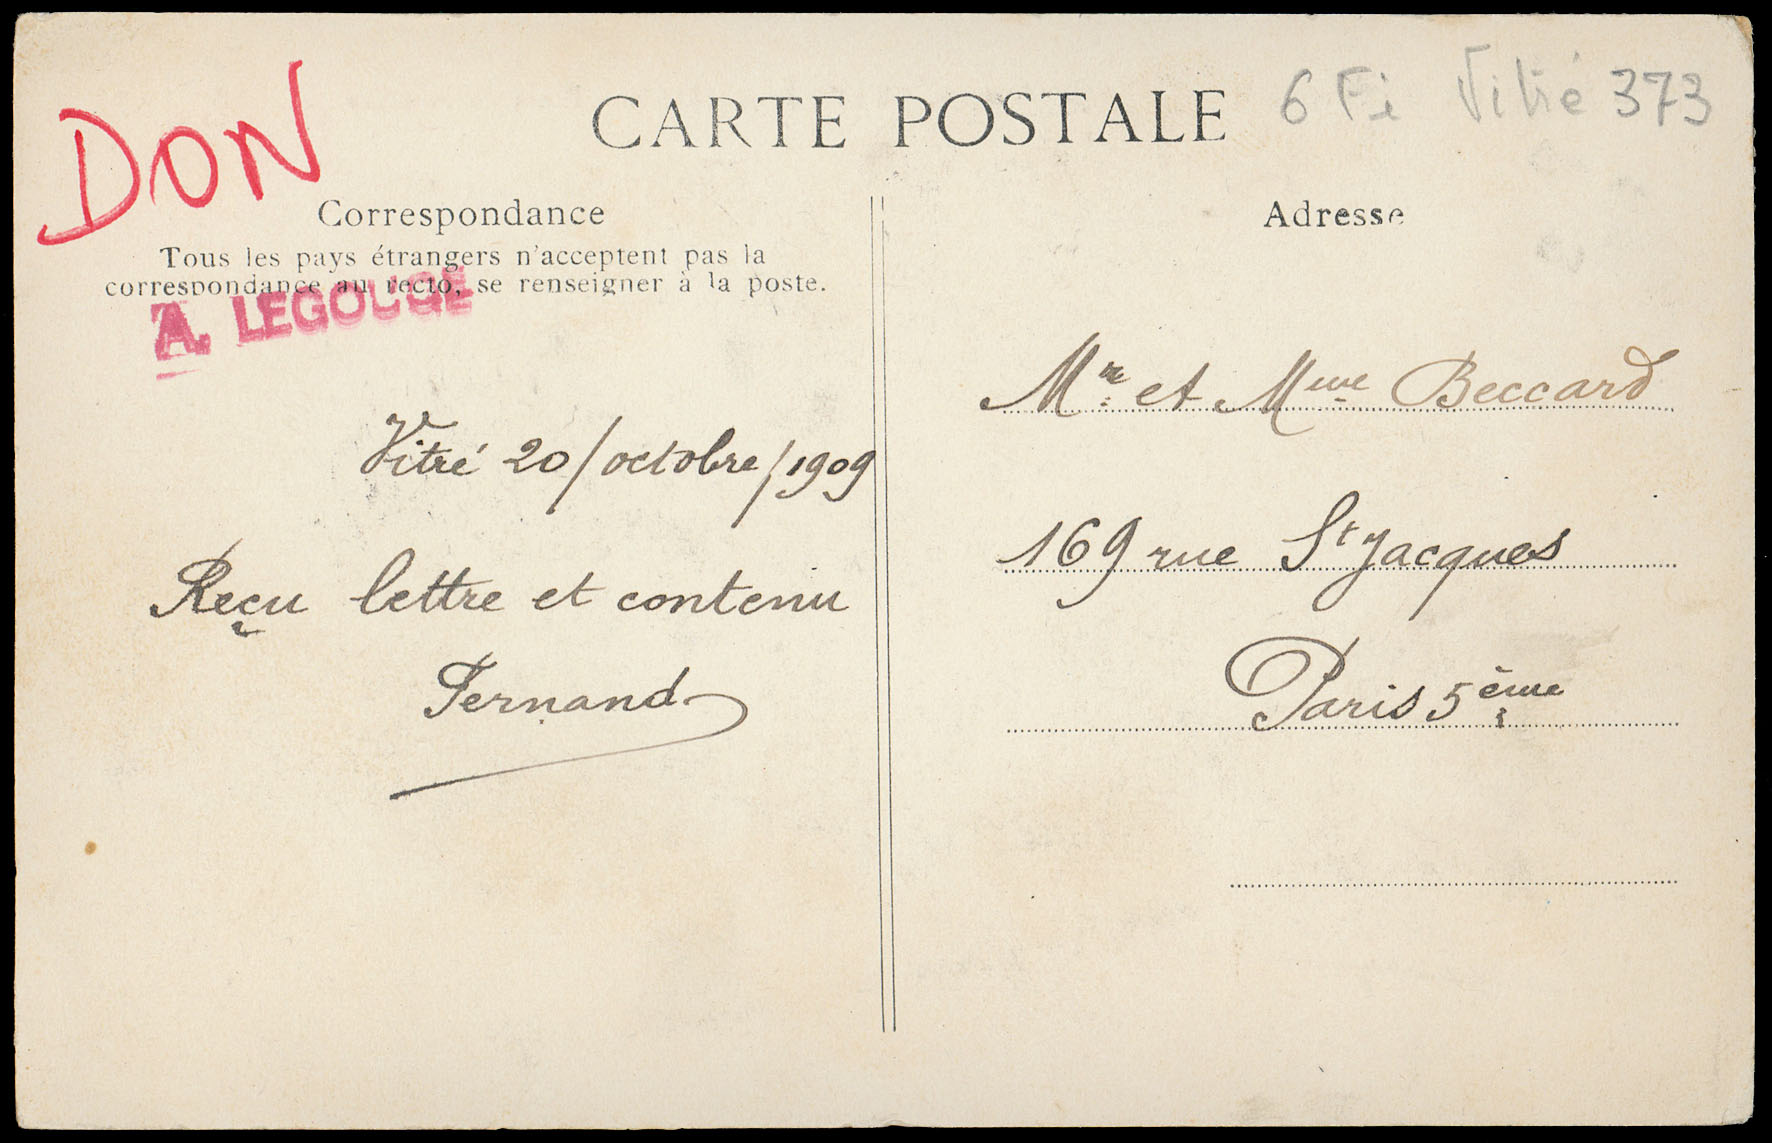 DON
CARTE POSTALE
6 Fi Vitré 373
Correspondance
Tous les pays étrangers n'acceptent pas la
correspondance au recto, se renseigner à la poste.
A. LEGOUGE
Vitré 20/octobre/1909
Reçu lettre et contenu
Fernand
Adresse
Mr et Mme Beccard
169 rue St Jacques
Paris 5ème